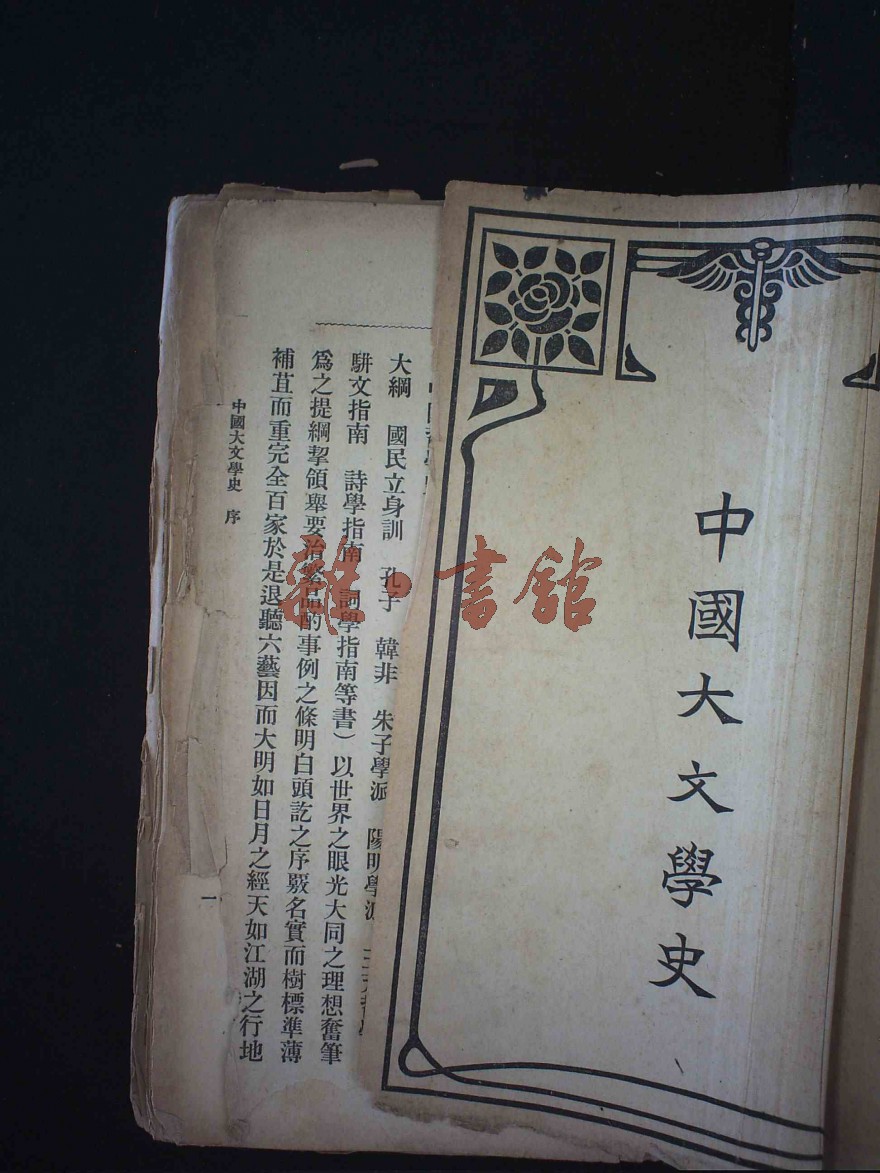 中國大文學史
大綱　國民立身訓　孔子　韓非　朱子學派　陽明學派
駢文指南　詩學指南　詞學指南等書）以世界之眼光大同之理想奮筆
爲之提綱挈領舉要治繁品酌事例之條明白頭訖之序覈名實而樹標準薄
補苴而重完全百家於是退聽六藝因而大明如日月之經天如江湖之行地
中國大文學史　序
一
雜·書館